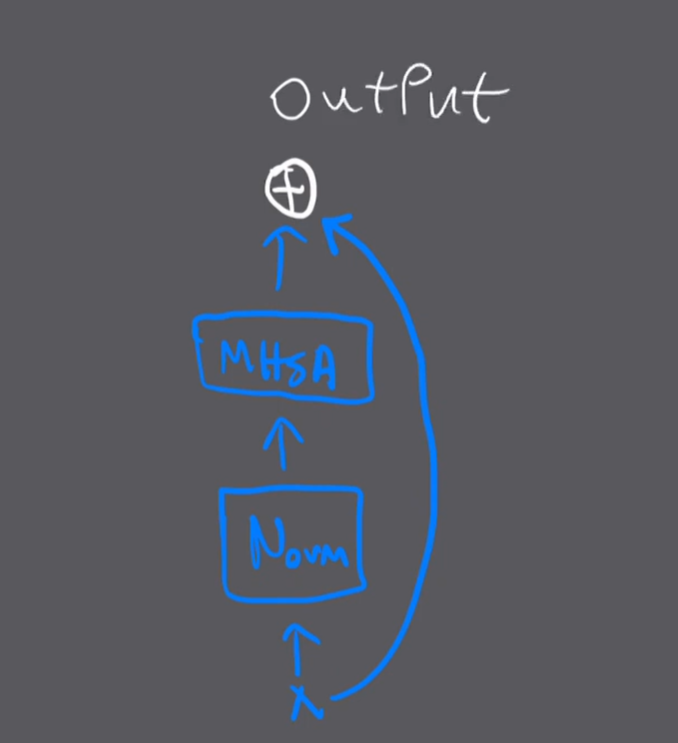 OutPut
+
MHSA
Norm
x